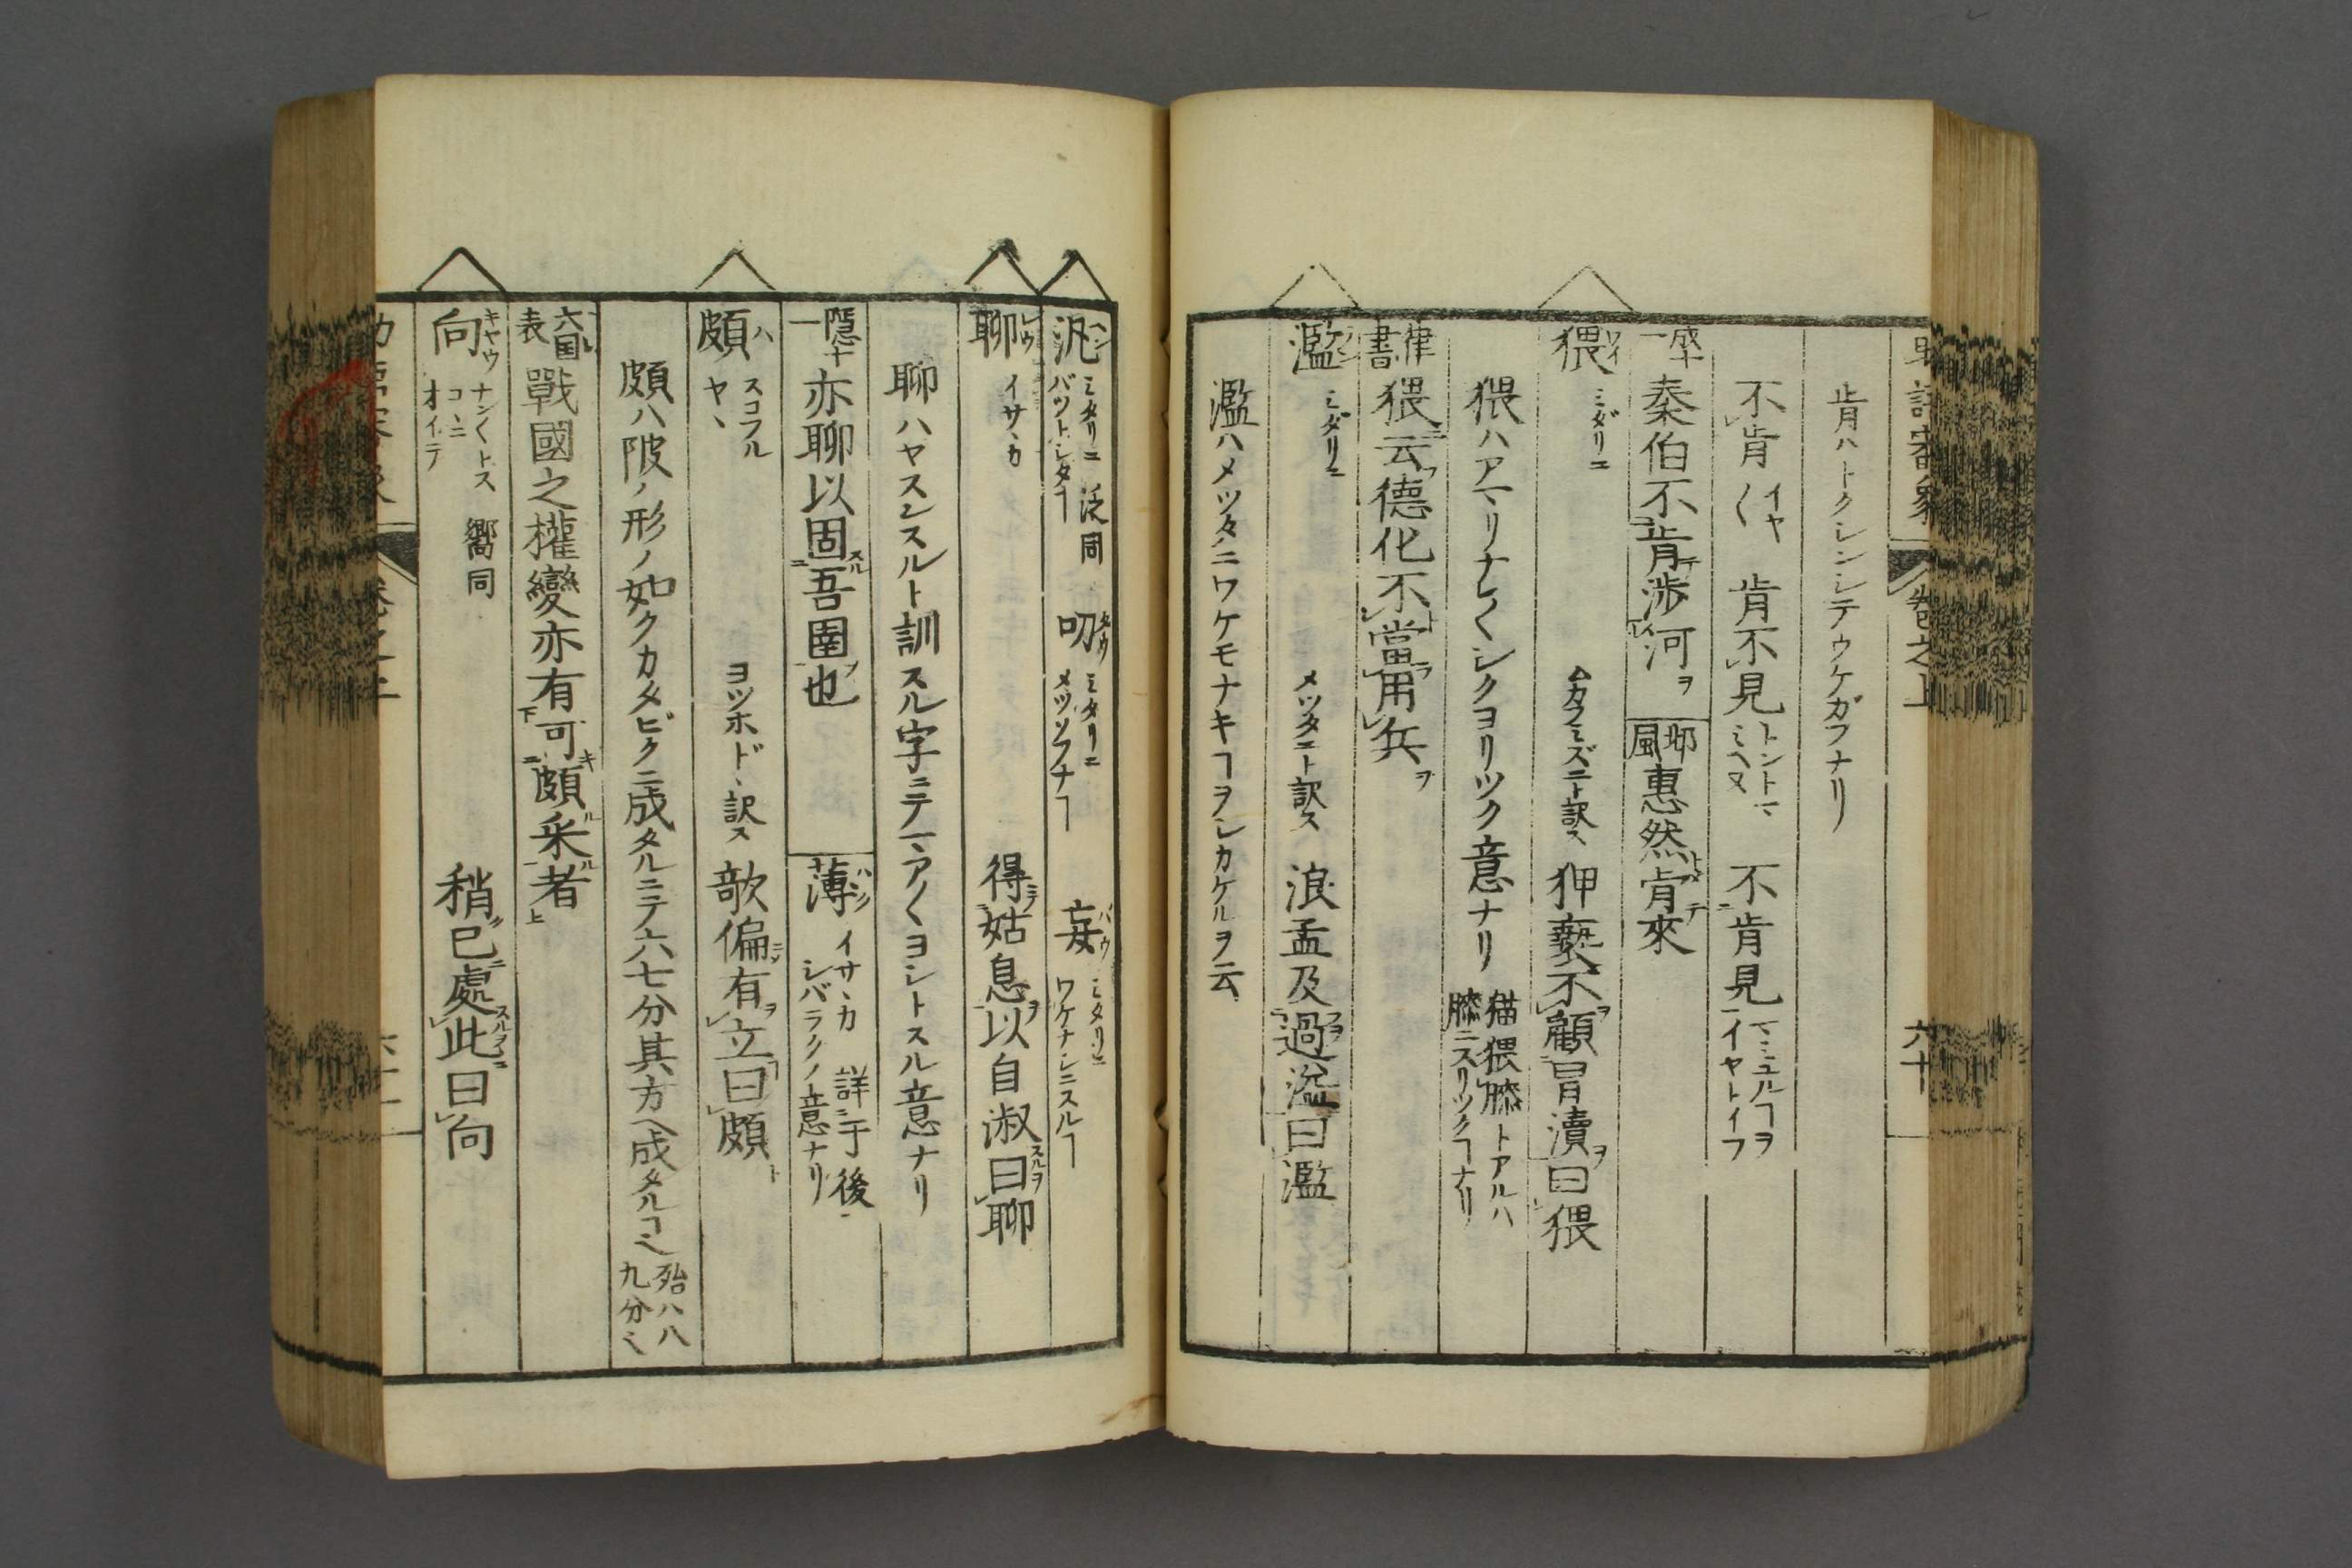 肯ハトクシンシテウケガフナリ
不肯〱 イヤ 肯不見 トントマミヘヌ 不肯見 マミユルヿヲイヤトイフ
秦伯不肯渉河ヲ 邶風 惠然肯來
猥 ワイ ミダリニ ムカフミズニト訳ス 狎褻不顧冒瀆曰猥
猥ハアマリナレ〱シクヨリツク意ナリ 猫猥膝トアルハ膝ニスリツクヿナリ
律書 猥云德化不當用兵ヲ
濫 ミダリニ メツタニト訳ス 浪孟及過溢曰濫
濫ハメツタニワケモナキヿヲシカケルヲ云
卷之上
六十
汎 ハン ミタリニ バツトシタヿ 泛同 叨 ミタリニ メツソフナヿ 妄 バウ ミタリニ ワケナシニスルヿ
聊 レウ イサヽカ 得姑息以自淑曰聊
聊ハヤスンスルト訓スル字ニテマヽアノ〱ヨシトスル意ナリ
隱十一 亦聊以固吾圉也 薄 イサヽカ シバラクノ意ナリ 詳于後
頗 ハ スコフル ヤヽ ヨツホドヽ訳ス 歆偏有立曰頗
頗ハ陂ノ形ノ如クカタビクニ成タルニテ六七分其方ヘ成タルヿ也 殆ハ八九分也
六国表 戰國之權變亦有可頗采者
向 キヤウ ナン〱トス コヽニオイテ 嚮同 稍已處此曰向